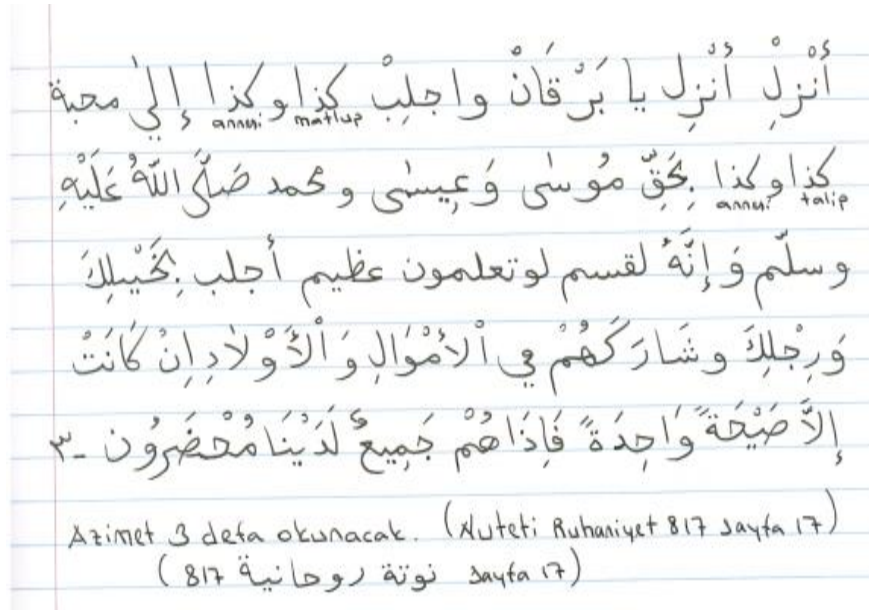 أَنْزِلْ أَنْزِل يا بَرْقَانْ واجلِبْ كذا وكذا إِلىٰ محبة
annesi matlup
كذا وكذا بِحَقِّ مُوسٰى وَعِيسٰى و محمد صَلَّى اللّٰهُ عَلَيْهِ
annesi talip
وسلّم وَإِنَّهُ لقسم لوتعلمون عظيم أجلب بِخَيْلِكَ
وَرِجْلِكَ وشَارَكَهُمْ فِي اْلأَمْوَالِ وَاْلأَوْلاَدِ اِنْ كَانَتْ
إِلاَّ صَيْحَةً وَاحِدَةً فَاِذَا هُمْ جَمِيعٌ لَدَيْنَا مُحْضَرُون - ٣
Azimet 3 defa okunacak. (Nuteti Ruhaniyet 817 sayfa 17)
(817 نوتة روحانية sayfa 17)